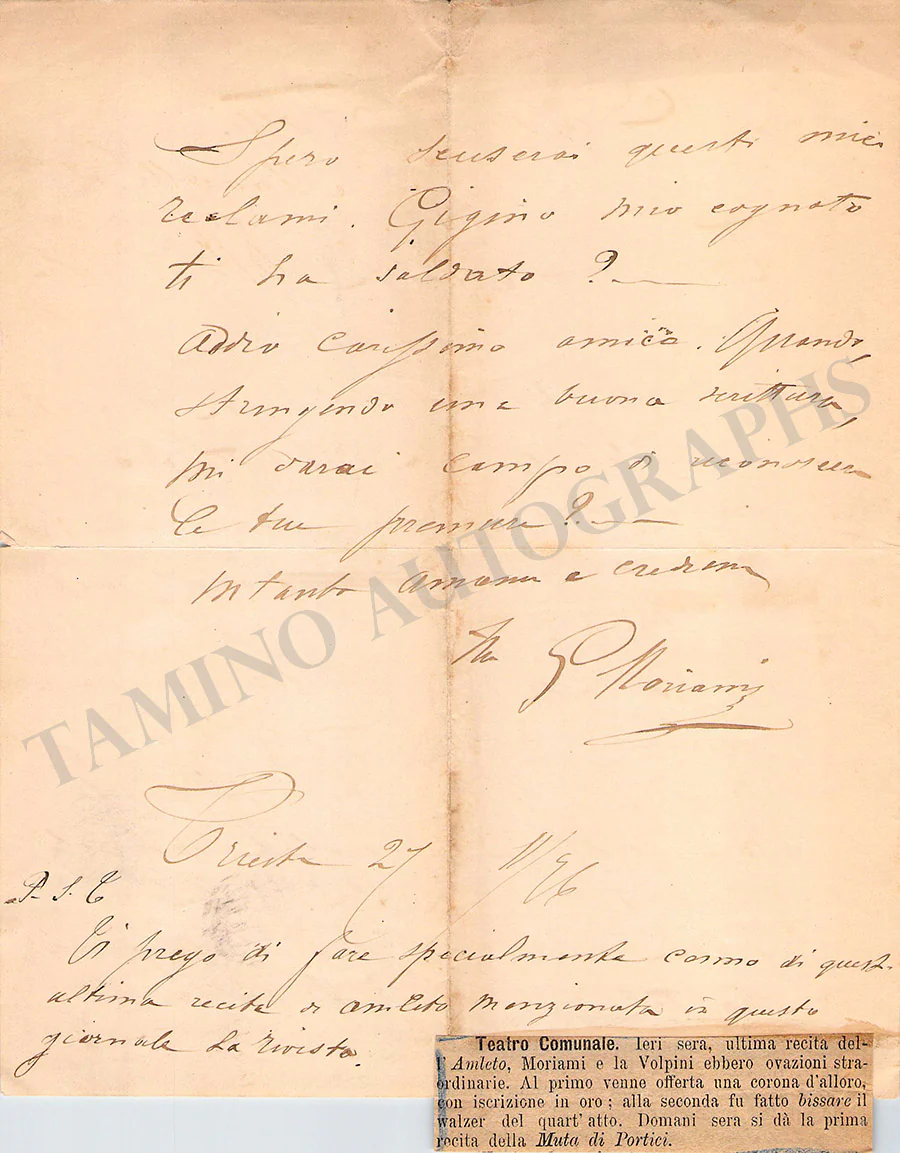 Spero scuserai questi miei
reclami. Gigino mio cognato
ti ha saldato?
Addio carissimo amico. Quando,
stringendo una buona scrittura,
mi darai campo di riconoscere
le tue premure?
Intanto amami e credimi
tuo G Moriami
Trieste 27 11/76
P. S.
Ti prego di fare specialmente cenno di quest'
ultima recita di Amleto menzionata in questo
giornale La Rivista.
Teatro Comunale. Ieri sera, ultima recita del-
l'Amleto, Moriami e la Volpini ebbero ovazioni stra-
ordinarie. Al primo venne offerta una corona d'alloro,
con iscrizione in oro; alla seconda fu fatto bissare il
walzer del quart' atto. Domani sera si dà la prima
recita della Muta di Portici.
TAMINO AUTOGRAPHS